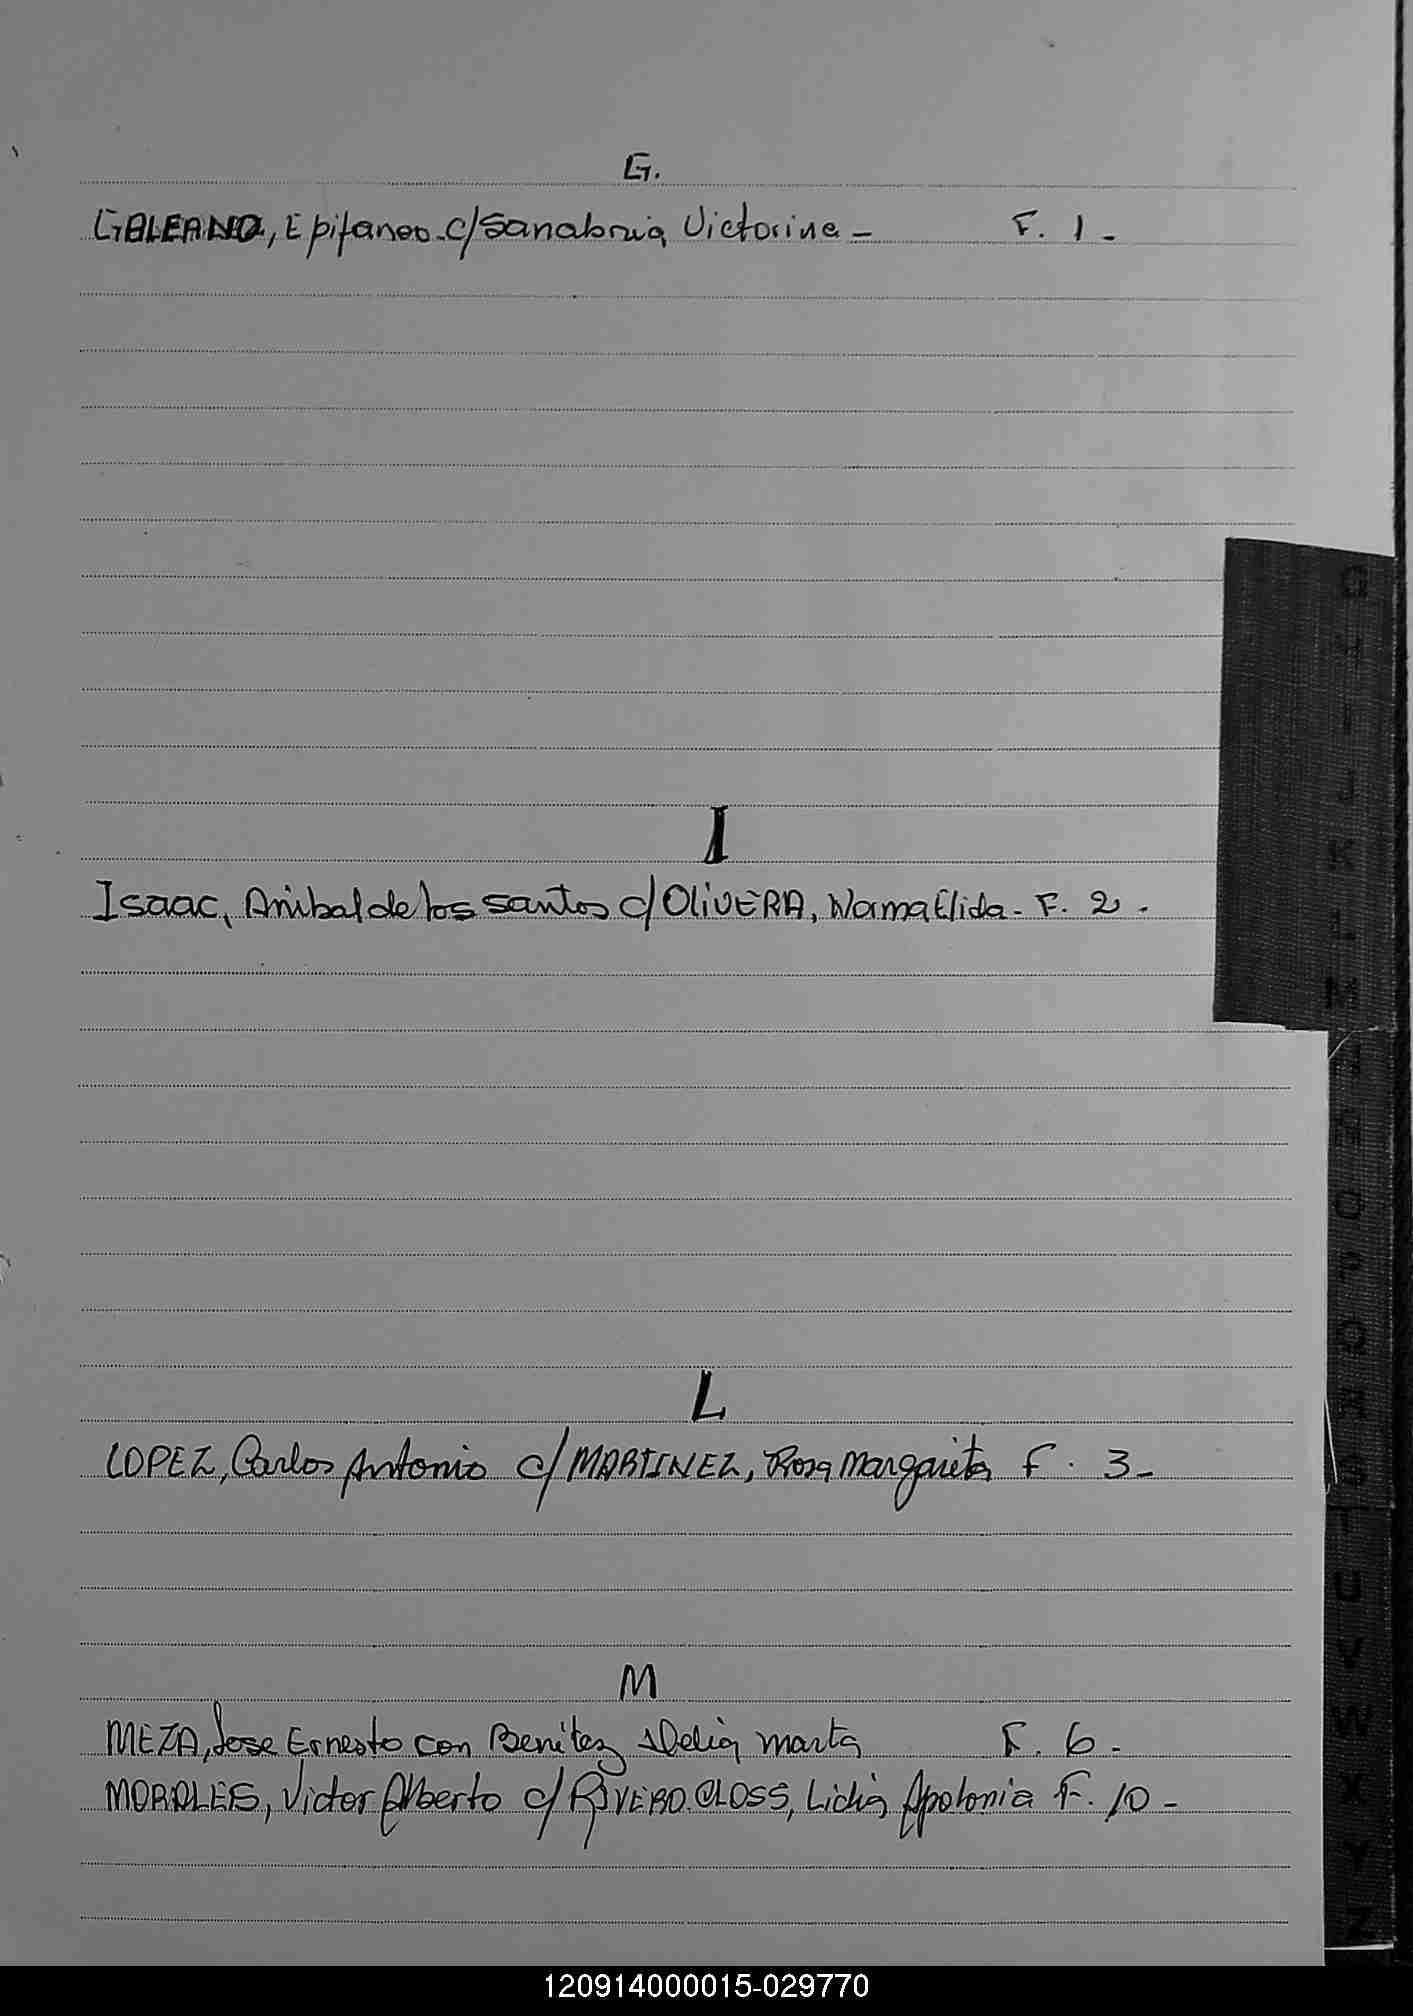 G.
GALEANO, Epifaneo c/ Sanabria, Victorina - F. 1 -
I
Isaac, Anibal de los santos c/ OLIVERA, Norma Elida - F. 2 -
L
LOPEZ, Carlos Antonio c/ MARTINEZ, Rosa Margarita F. 3 -
M
MEZA, Jose Ernesto con Benitez Delia marta F. 6 -
MORALES, Victor Alberto c/ RIVERO. CLOSS, Lidia Apolonia F. 10 -
G
H
I
J
K
L
M
N
Ñ
O
P
Q
R
S
T
U
V
W
X
Y
Z
120914000015-029770